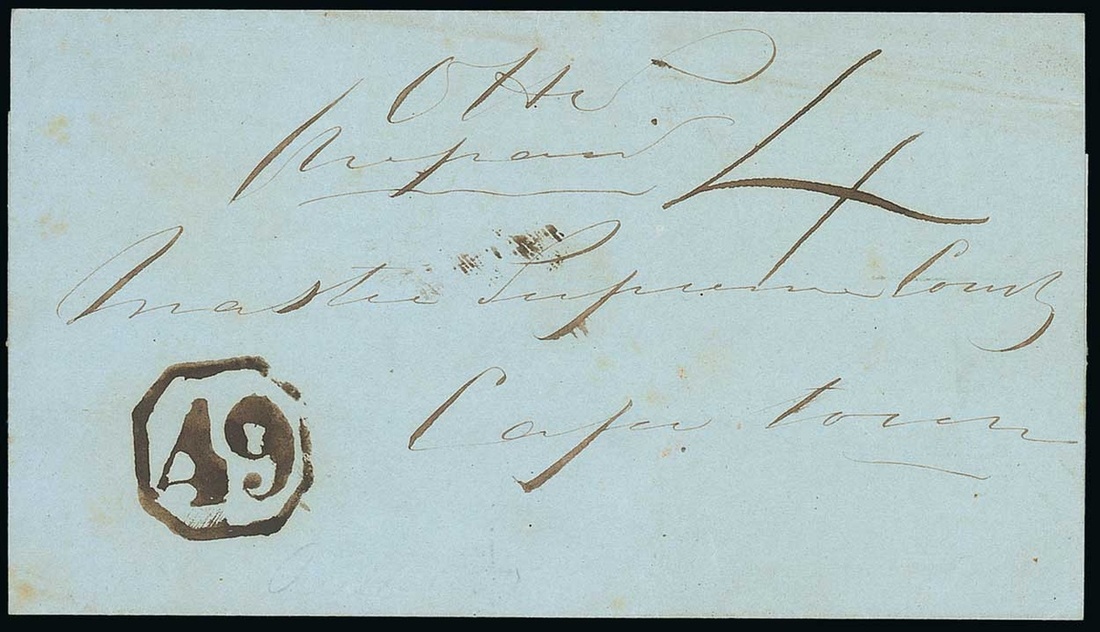 OHMS
prepaid 4
Master Supreme Court
Cape town
49